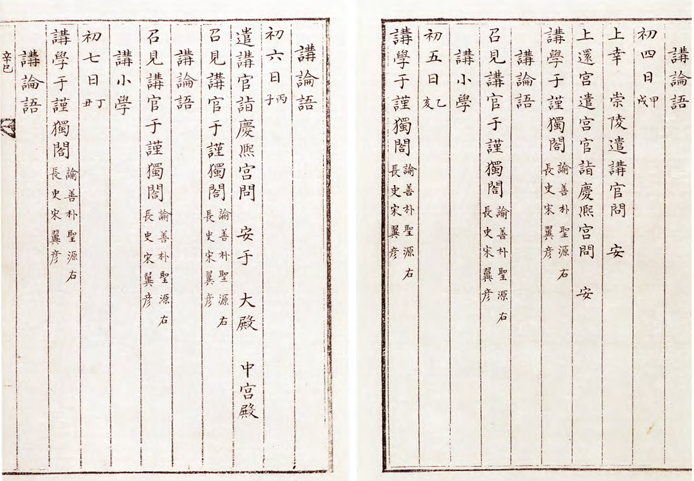 講論語
初四日甲戌
上幸　崇陵遣講官問　安
上還宮遣宮官詣慶熙宮問　安
講學于謹獨閤諭善朴聖源右長史宋翼彦
講論語
召見講官于謹獨閤諭善朴聖源右長史宋翼彦
講小學
初五日乙亥
講學于謹獨閤諭善朴聖源右長史宋翼彦
講論語
初六日丙子
遣講官詣慶熙宮問　安于　大殿　中宮殿
召見講官于謹獨閤諭善朴聖源右長史宋翼彦
講論語
召見講官于謹獨閤諭善朴聖源右長史宋翼彦
講小學
初七日丁丑
講學于謹獨閤諭善朴聖源右長史宋翼彦
講論語
辛巳